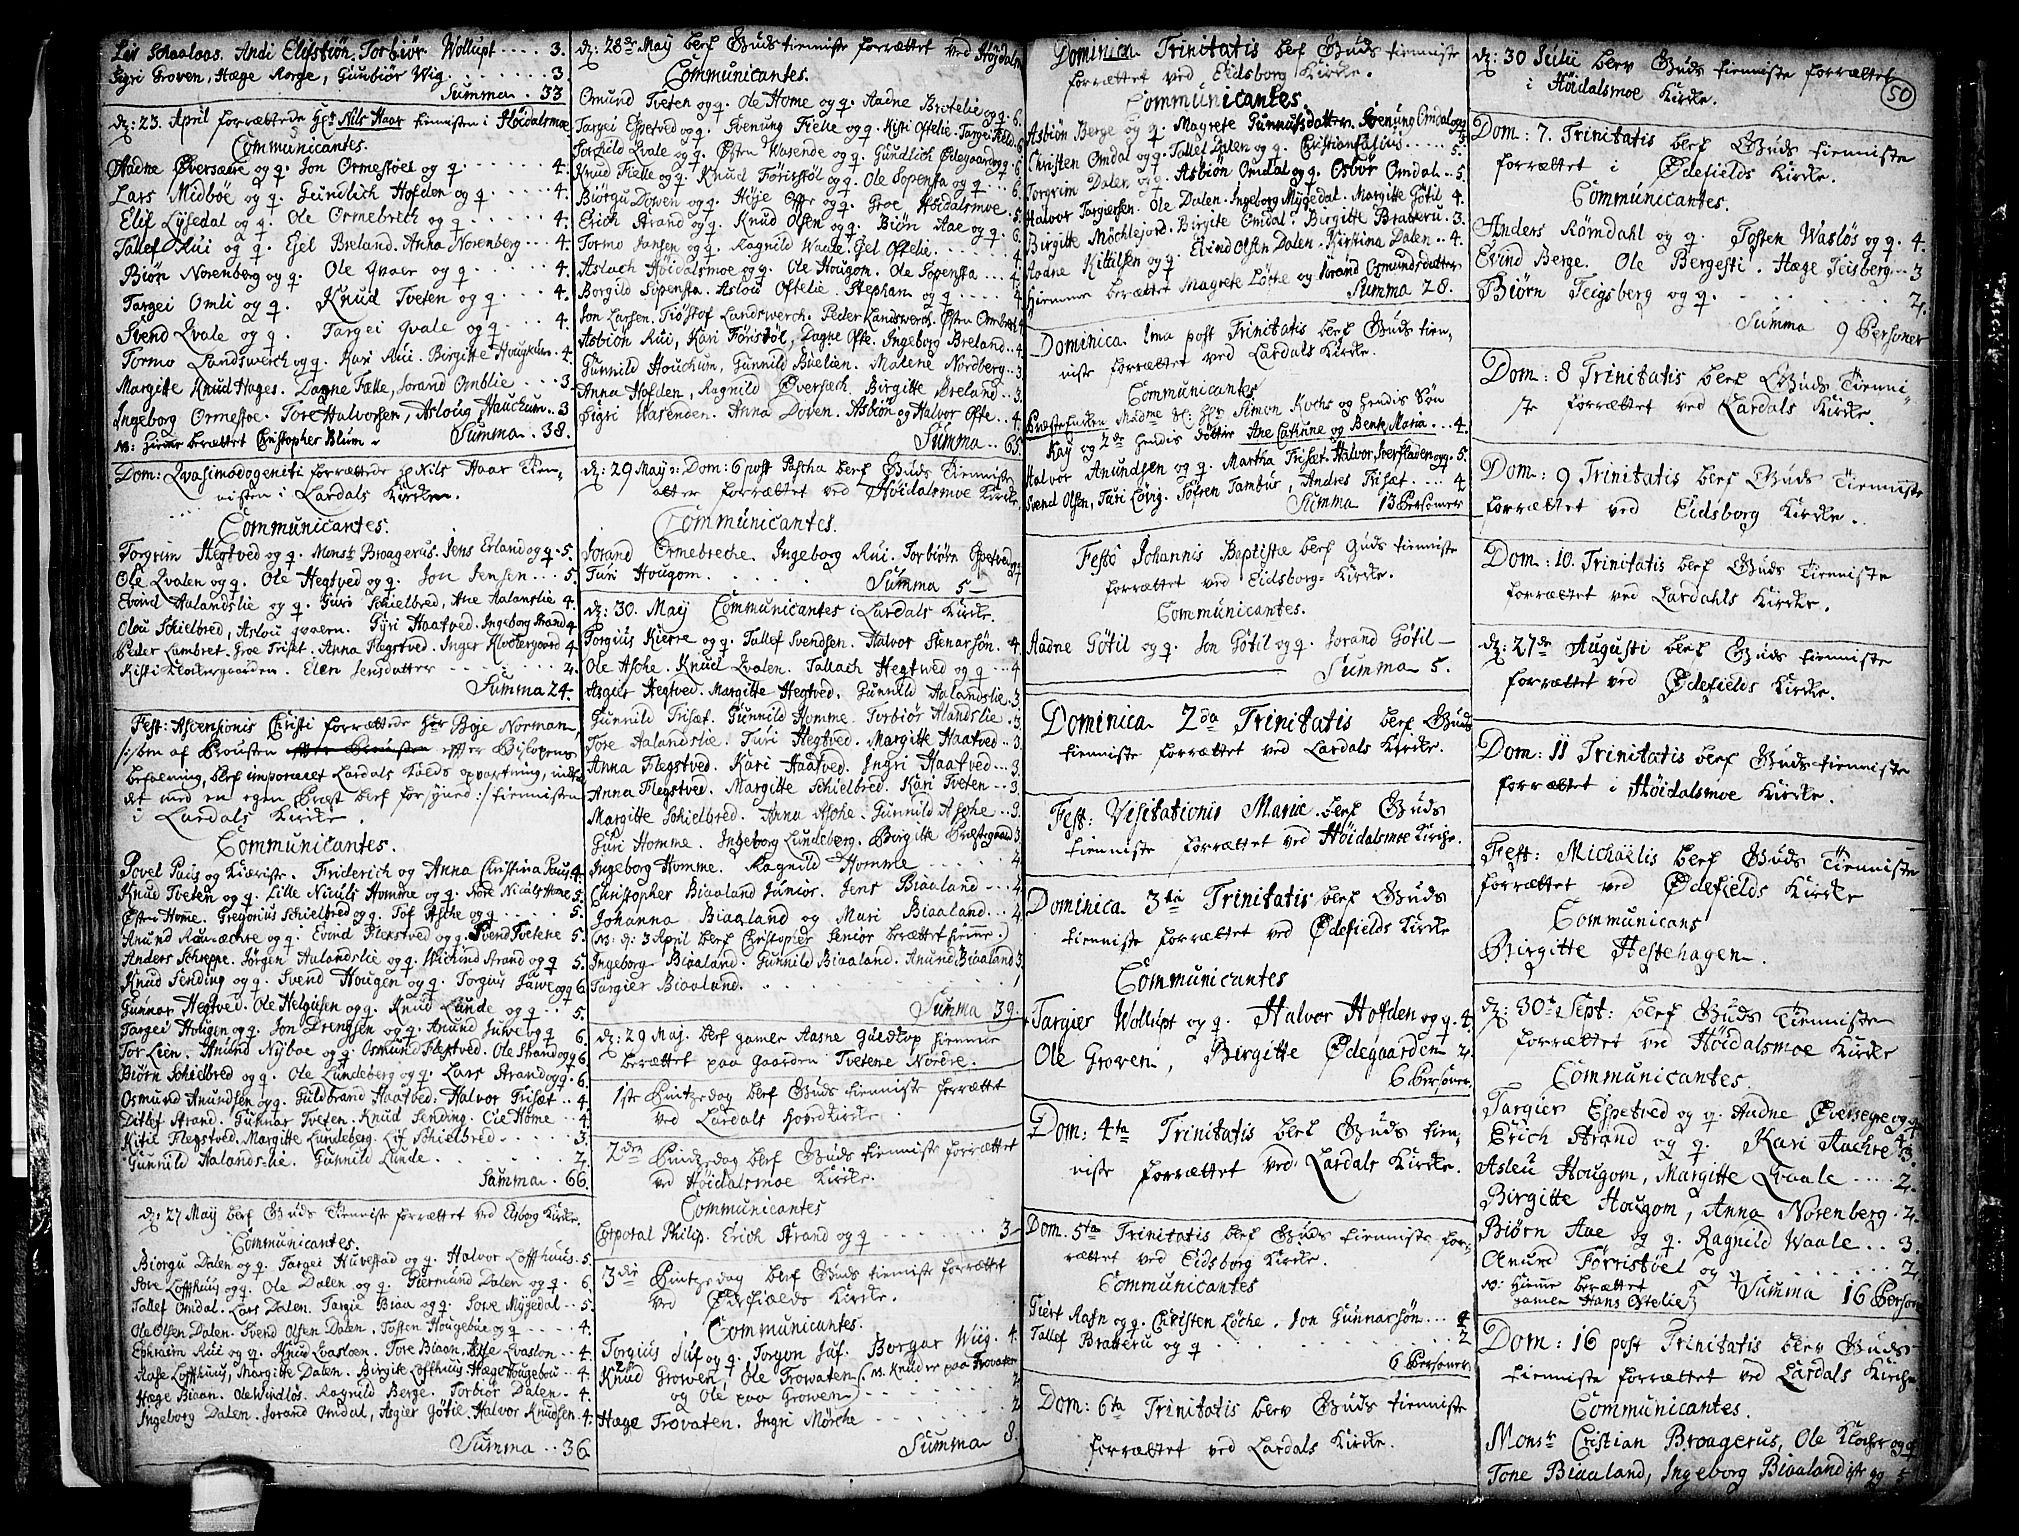 Lei Schaalaas. Andi Elifstiøn. Torbiør Wollupt .... 3.
Sigri Groven, Hæge Rorge, Gunbiør Wig ....... 3
Summa .. 33
d: 23. April forrættede Hr: Nils Haar tienisten i Høidalsmoe
Communicantes.
Aadne Øversære og q. Jon Ormestoel og q ..... 4.
Lars Midbøe og q. Gundlich Hofden og q .... 4.
Elif Lysedal og q. Ole Ormebrech og q ..... 4.
Tallef Rui og q. Egel Breland. Anna Norenberg ... 4.
Biørn Norenberg og q. Ole Qvaer og q ..... 4.
Targei Omli og q. Knud Tveten og q .... 4.
Svend Qvale og q. Targei Qvale og q .... 4.
Tormo Landswerch og q. Kari Rui. Birgitte Hougkum . 4.
Margitte Knud Hages. Dagne Fælle, Jorand Omblie ... 3.
Ingeborg Ormestoe. Tore Halvorsen, Asloug Hauchum .. 3
N: hiemme berættet Christopher Blum. Summa .. 38.
Dom: Qvasimodogeniti forrættede Hr Nils Haar Tien-
nisten i Lardals Kircke.
Communicantes.
Torgrim Hegtved og q. Monsr Broagerus. Jens Erland og q . 5.
Ole Qvalen og q. Ole Hegtved og q. Jon Jensen .... 5.
Evind Aalandslie og q. Guri Schielbred, Ane Aalanslie 4.
Olou Schielbred, Aslou qvaern. Gyri Haatved. Ingeborg Strand 4
Peder Lambret. Groe Triset. Anna Flegstved. Inger Klostergaard 4
Kisti Klostergaarden. Elen Jensdatter ..... 2.
Summa 24.
Fest: Ascensionis Christi forrættede Hr Boje Norman,
/:som af Prousten efter Bispens
befalning, blef imponeret Lardals Kalds opvartning, indtil
det med en egen Præst blef forsyned:/ tiennisten
i Lardals Kircke.
Communicantes.
Povel Paus og Kiæriste. Friderich og Anna Christina Paus 4.
Knud Tveten og q. Lille Niculs Homme og q. Store Niculs Home 5
Østen Home. Gregorius Schielbred og q. Tof Asche og q ..... 5.
Anund Rauaachre og q. Evind Flekstved og q. Svend Tvetene 5.
Anders Schreppe. Jørgen Aalandslie og q. Wichind Strand og q 5.
Knud Sending og q. Svend Hougen og q. Torgius Juwe og q 6
Gunnar Hegtved. Ole Helgiusen og q. Knud Lunde og q .. 5.
Targei Hougen og q. Jon Drengsen og q. Anund Juwe og q 6.
Tor Lien. Anund Nyboe og q. Osmund Flestved. Ole Strand og q 6
Biørn Schielbred og q. Ole Lundeberg og q. Lars Strand og q . 6.
Osmund Anundsen og q. Guldbrand Haatved. Halvor Triset .. 4.
Ditlef Strand. Gunnar Tveten. Knud Sending. Cie Home .. 4.
Kitil Flegstved. Margitte Lundeberg. Lif Schielbred .... 3.
Gunnild Aalands-lie. Gunnild Lunde ..... 2.
Summa .. 66.
d: 27 May blef Guds Tienniste forrættet ved Eidsborg Kircke.
Communicantes.
Biorgu Dalen og q. Targei Huvestad og q. Halvor Loffthuus . 5.
Sove Loffthuus og q. Ole Dalen og q. Giermund Dalen og q . 6
Tallef Omdal. Lars Dalen. Targie Biaa og q. Sove Mygedal .. 5.
Ole Olsen Dalen. Svend Olsen Dalen. Tosten Hougebøe og q .... 4.
Ephraim Rui og q. Knud Qvasloen. Tore Biaan. Aste Qvaslon .. 4.
Aase Loffthuus, Margitte Dalen. Birgitte Loffthuus. Hæge Hougebou .. 4.
Hæge Biaan. Ole Windløs. Ragnild Berge. Torbiør Dalen . 4.
Ingeborg Dalen. Jorand Omdal, Asgier Gøtil. Halvor Knudsen . 4.
Summa .. 36
d: 28de May blef Guds tienniste forrættet ved Højdalsm
Communicantes.
Omund Tveten og q. Ole Home og q. Aadne Brotelie og q . 6.
Targei Espetved og q. Svenung Fielle og q. Kisti Oftelie. Targei Fielle 6
Torkild Qvale og q. Østen Wasende og q. Gundlich Ødegaard og q . 6
Knud Fielle og q. Knud Førisstøl og q. Ole Sopensta og q ... 6.
Biørgu Doven og q. Høye Ofte og q. Groe Høidalsmoe . 5.
Erich Strand og q. Knud Olsen og q. Biørn Aae og q . 6.
Tormo Jansen og q. Ragnild Waale. Egel Oftelie ...... 4
Aslach Høidalsmoe og q. Ole Hougom. Ole Sopensta ... 4.
Borgild Sopensta. Aslou Oftelie. Stephan og q ..... 4
Jon Larsen. Tiøstof Landswerch. Peder Landswerch. Østen Ombl 4
Asbiøn Rui, Kari Føristøl, Dagne Ofte. Ingeborg Breland .. 4.
Gunnild Houchum, Gunnild Buelien. Malene Nordberg .. 3
Anna Hofden, Ragnild Øversæch, Birgitte Breland .. 3.
Sigri Wasenden. Anna Doven. Asbiøn og Halvor Ofte .. 4.
Summa .. 65.
d: 29 May: Dom: 6 post Pascha blef Guds Tienniste
atter forrættet ved Høidalsmoe Kircke
Communicantes.
Jorand Ormebreche. Ingeborg Rui. Torbiørn Espetved
Turi Hougom ..... Summa 5 —
d: 30. May Communicantes i Lardals Kircke.
Torgius Kierre og q. Tallef Svendsen. Halvor Stenarsøn . 4.
Ole Asche. Knud Qvalen. Tallach Hegtved og q ... 4
Asgur Hegtved. Margitte Hegtved. Gunnild Aalandslie . 3.
Gunnild Triset. Gunnild Homme. Torbiør Alandslie . 3
Tore Aalandslie. Turi Hegtved. Margitte Haatved .. 3.
Anna Flegstved. Kari Haatved. Ingri Haatved ... 3.
Anna Flegstved. Margitte Schielbred. Kari Tveten .. 3.
Margitte Schielbred. Anna Asche. Gunnild Asche .. 3.
Guri Homme. Ingeborg Lundeberg. Borgild Prestegaard 3
Ingeborg Homme. Ragnild Homme ..... 4
Christopher Biaaland Junior. Jens Biaaland ... 4
Johanna Biaaland og Mari Biaaland .. 4
(N: d: 3 April blef Christopher Senior berættet hiemme.)
Ingeborg Biaaland. Gunnild Biaaland. Anund Biaaland 3.
Targier Biaaland. ........ 1
Summa 39.
d: 29 Maj. blef gamle Aasne Guldtop hiemme
berættet paa gaarden Tvetene Nordre.
1ste Pintzedag blef Guds tienniste forrættet
ved Lardals Hovedkircke.
2den Pintzedag blef Guds tienniste forrættet
ved Høidalsmoe Kircke.
Communicantes
Corporal Philip. Erich Strand og q ...... 3 —
3die Pintzedag blef Guds tienniste forrættet
ved Ødefields Kircke.
Communicantes.
Torgius Juf og q. Torgon Juf. Borgar Wiig . 4.
Knud Growen, Ole Trowaten (: N. Knud er paa Trovaten
og Ole paa Growen) ...... 2
Hæge Trovaten. Ingri Mørche ..... 2
Summa 8.
Dominica Trinitatis blef Guds tienniste
forrættet ved Eidsborg Kircke.
Communicantes.
Asbiøn Berge og q. Magrete Gunnulsdatter. Svenung Omdal og q 5.
Christen Omdal og q. Tallef Dalen og q. Christian Falsius ..... 5.
Torgrim Dalen og q. Asbiøn Omdal og q. Osbør Omdal .. 5.
Halvor Targiersen. Ole Dalen. Ingeborg Mygedal. Margitte Gøtil 4.
Birgitte Mochlejord. Birgitte Omdal. Birgitte Bratteru . 3.
Aadne Kittilsen og q. Evind Olsen Dalen. Kirstina Dalen .. 4.
Hiemme berættet Magrete Løche og Jorand Osmundsdatter
Summa 28.
Dominica 1ma post Trinitatis blef Guds tien-
niste forrættet ved Lardals Kircke.
Communicantes
Præste Encken Madme Sl: Hr Simon Kochs og hendis Søn
Kay og 2de hendis døttre Ane Catrine og Bente Maria ... 4.
Halvor Anundsen og q. Martha Triset. Halvor Sverstaden og q . 5.
Svend Olsen, Turi Loug. Søfren Tambur, Andres Triset .... 4
Summa 13 Personer
Festo Johannis Baptistæ blef Guds tienniste
forrættet ved Eidsborg Kircke.
Communicantes.
Aadne Gøtil og q. Jon Gøtil og q. Jorand Gøtil —
Summa 5.
Dominica 2da Trinitatis blef Guds
tienniste forrættet ved Lardals Kircke.
Fest: Visitationis Mariæ blef Guds
tienniste forrættet ved Høidalsmoe Kirche.
Dominica 3tia Trinitatis blef Guds
tienniste forrættet ved Ødefields Kircke
Communicantes
Targier Wollupt og q. Halvor Hofden og q . 4.
Ole Groven, Birgitte Ødegaarden 2.
6 Personer.
Dom: 4ta Trinitatis blef Guds tien-
niste forrættet ved Lardals Kircke.
Dom. 5ta Trinitatis blef Guds tienniste for-
rættet ved Eidsborg Kircke.
Communicantes
Giert Aasn og q. Christen Løche. Jon Gunnarsøn ... 4
Tallef Bratteru og q ..... 2
6 Personer.
Dom: 6ta Trinitatis blev Guds tienniste
forrættet ved Lardals Kircke.
50
d: 30 Julii blev Guds tienniste forrættet
i Høidalsmoe Kircke.
Dom: 7. Trinitatis blef Guds tienniste
forrættet i Ødefields Kircke.
Communicantes.
Anders Romdahl og q. Tosten Wasløs og q . 4.
Evind Berge. Ole Bergesti. Hæge Teisberg .. 3
Biørn Teigsberg og q. ....... 2.
Summa 9 Personer
Dom: 8 Trinitatis blef Guds Tienni-
ste forrættet ved Lardals Kircke.
Dom: 9 Trinitatis blef Guds Tienniste
forrættet ved Eidsborg Kircke.
Dom: 10. Trinitatis blef Guds Tienniste
forrættet ved Lardahls Kircke.
d: 27de Augusti blef Guds tienniste
forrættet ved Ødefields Kircke.
Dom: 11 Trinitatis blef Guds tienniste
forrættet i Høidalsmoe Kircke.
Fest: Michaëlis blef Guds Tienniste
forrættet ved Ødefields Kircke
Communicans
Birgitte Hestehagen.
d: 30te Sept: blef Guds Tienniste
forrættet ved Høidalsmoe Kircke
Communicantes.
Targier Espetved og q. Aadne Øversegre og q 4.
Erich Strand og q. Kari Aachre 3.
Asleu Hougom, Margitte Qvaale ..... 2.
Birgitte Hougom, Anna Norenberg . 2.
Biørn Aae og q. Ragnild Waale .. 3.
Anund Førristøel og q ...... 2.
N: Hiemme berættet
gamle Hans Oftelie} Summa 16 Person
Dom: 16 post Trinitatis blev Guds
tienniste forrættet ved Lardals Kirche
Communicantes.
Monsr Cristian Broagerus, Ole Klocher og q
Tone Biaaland, Ingeborg Biaaland